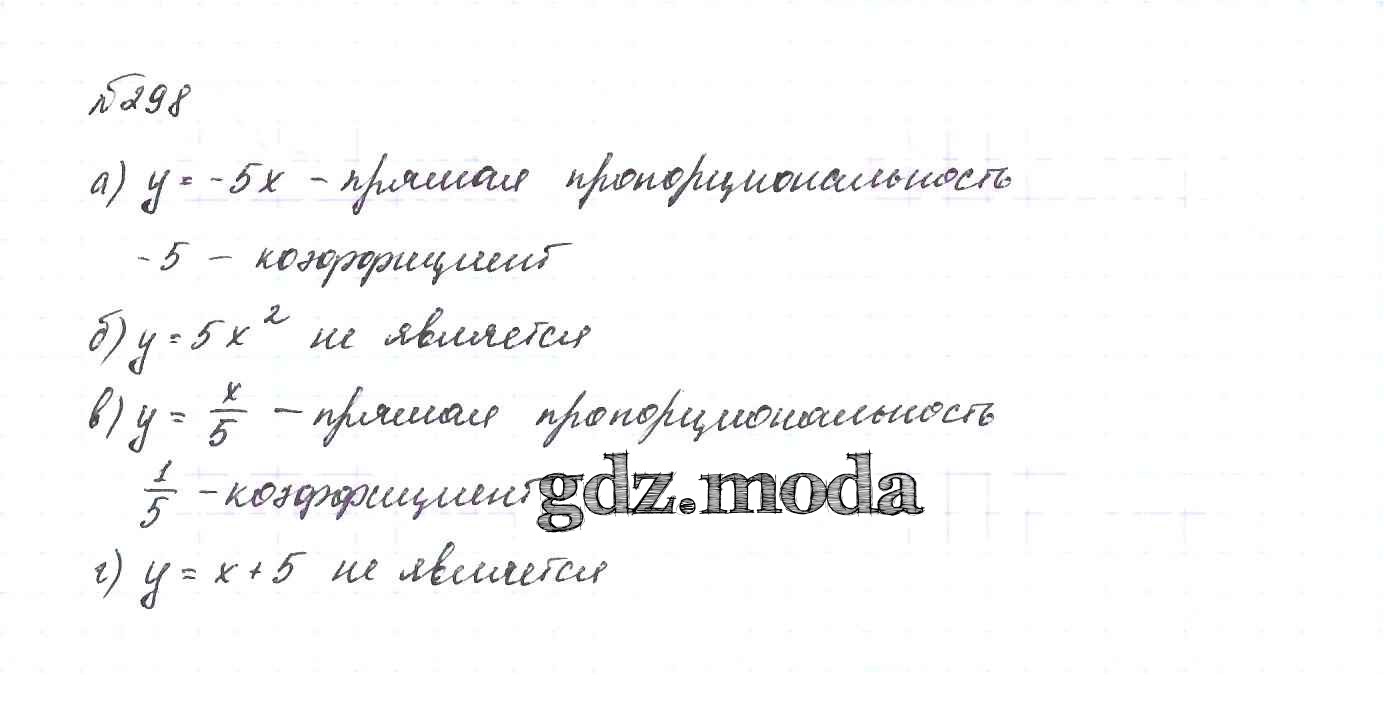 №298
а) y = -5x - прямая пропорциональность
-5 - коэффициент
б) y = 5x² не является
в) y = x/5 - прямая пропорциональность
1/5 - коэффициент
gdz.moda
г) y = x + 5 не является